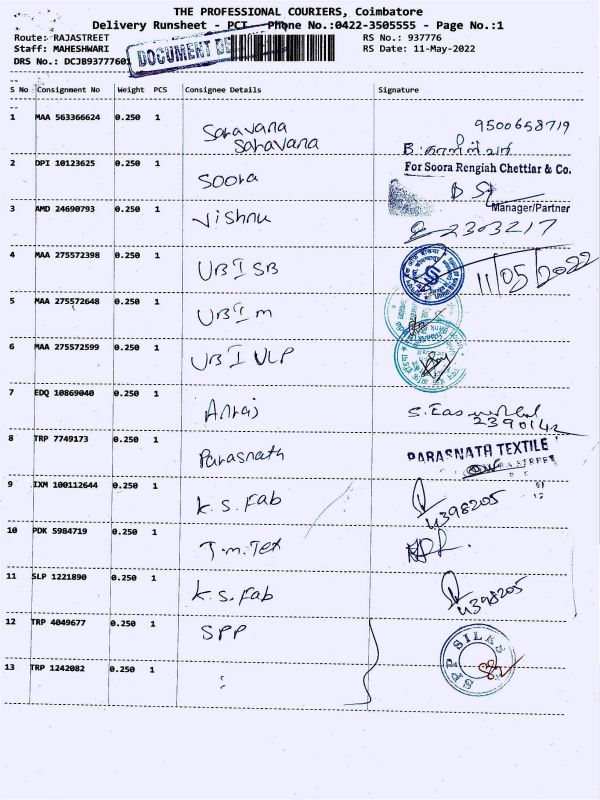 THE PROFESSIONAL COURIERS, Coimbatore
Delivery Runsheet - PCT - Phone No.:0422-3505555 - Page No.:1
Route: RAJASTREET RS No.: 937776
Staff: MAHESHWARI RS Date: 11-May-2022
DRS No.: DCJB93777601
DOCUMENT DE
S No Consignment No Weight PCS Consignee Details Signature
1 MAA 563366624 0.250 1 Saravana 9500658719
Saravana B.
2 DPI 10123625 0.250 1 Soora For Soora Rengiah Chettiar & Co.
Manager/Partner
3 AMD 24690793 0.250 1 Vishnu 2303217
4 MAA 275572398 0.250 1 UBI SB 11/05/2022
5 MAA 275572648 0.250 1 UBI m
6 MAA 275572599 0.250 1 UBI VLP
7 EDQ 10869040 0.250 1 Anraj S.
2390142
8 TRP 7749173 0.250 1 Parasnath PARASNATH TEXTILE
STREET
9 IXM 100112644 0.250 1 K. S. Fab
4398205
10 PDK 5984719 0.250 1 J.m.Tex
11 SLP 1221890 0.250 1 K.s.Fab
4398205
12 TRP 4049677 0.250 1 SPP SPP SILKS
13 TRP 1242082 0.250 1 :